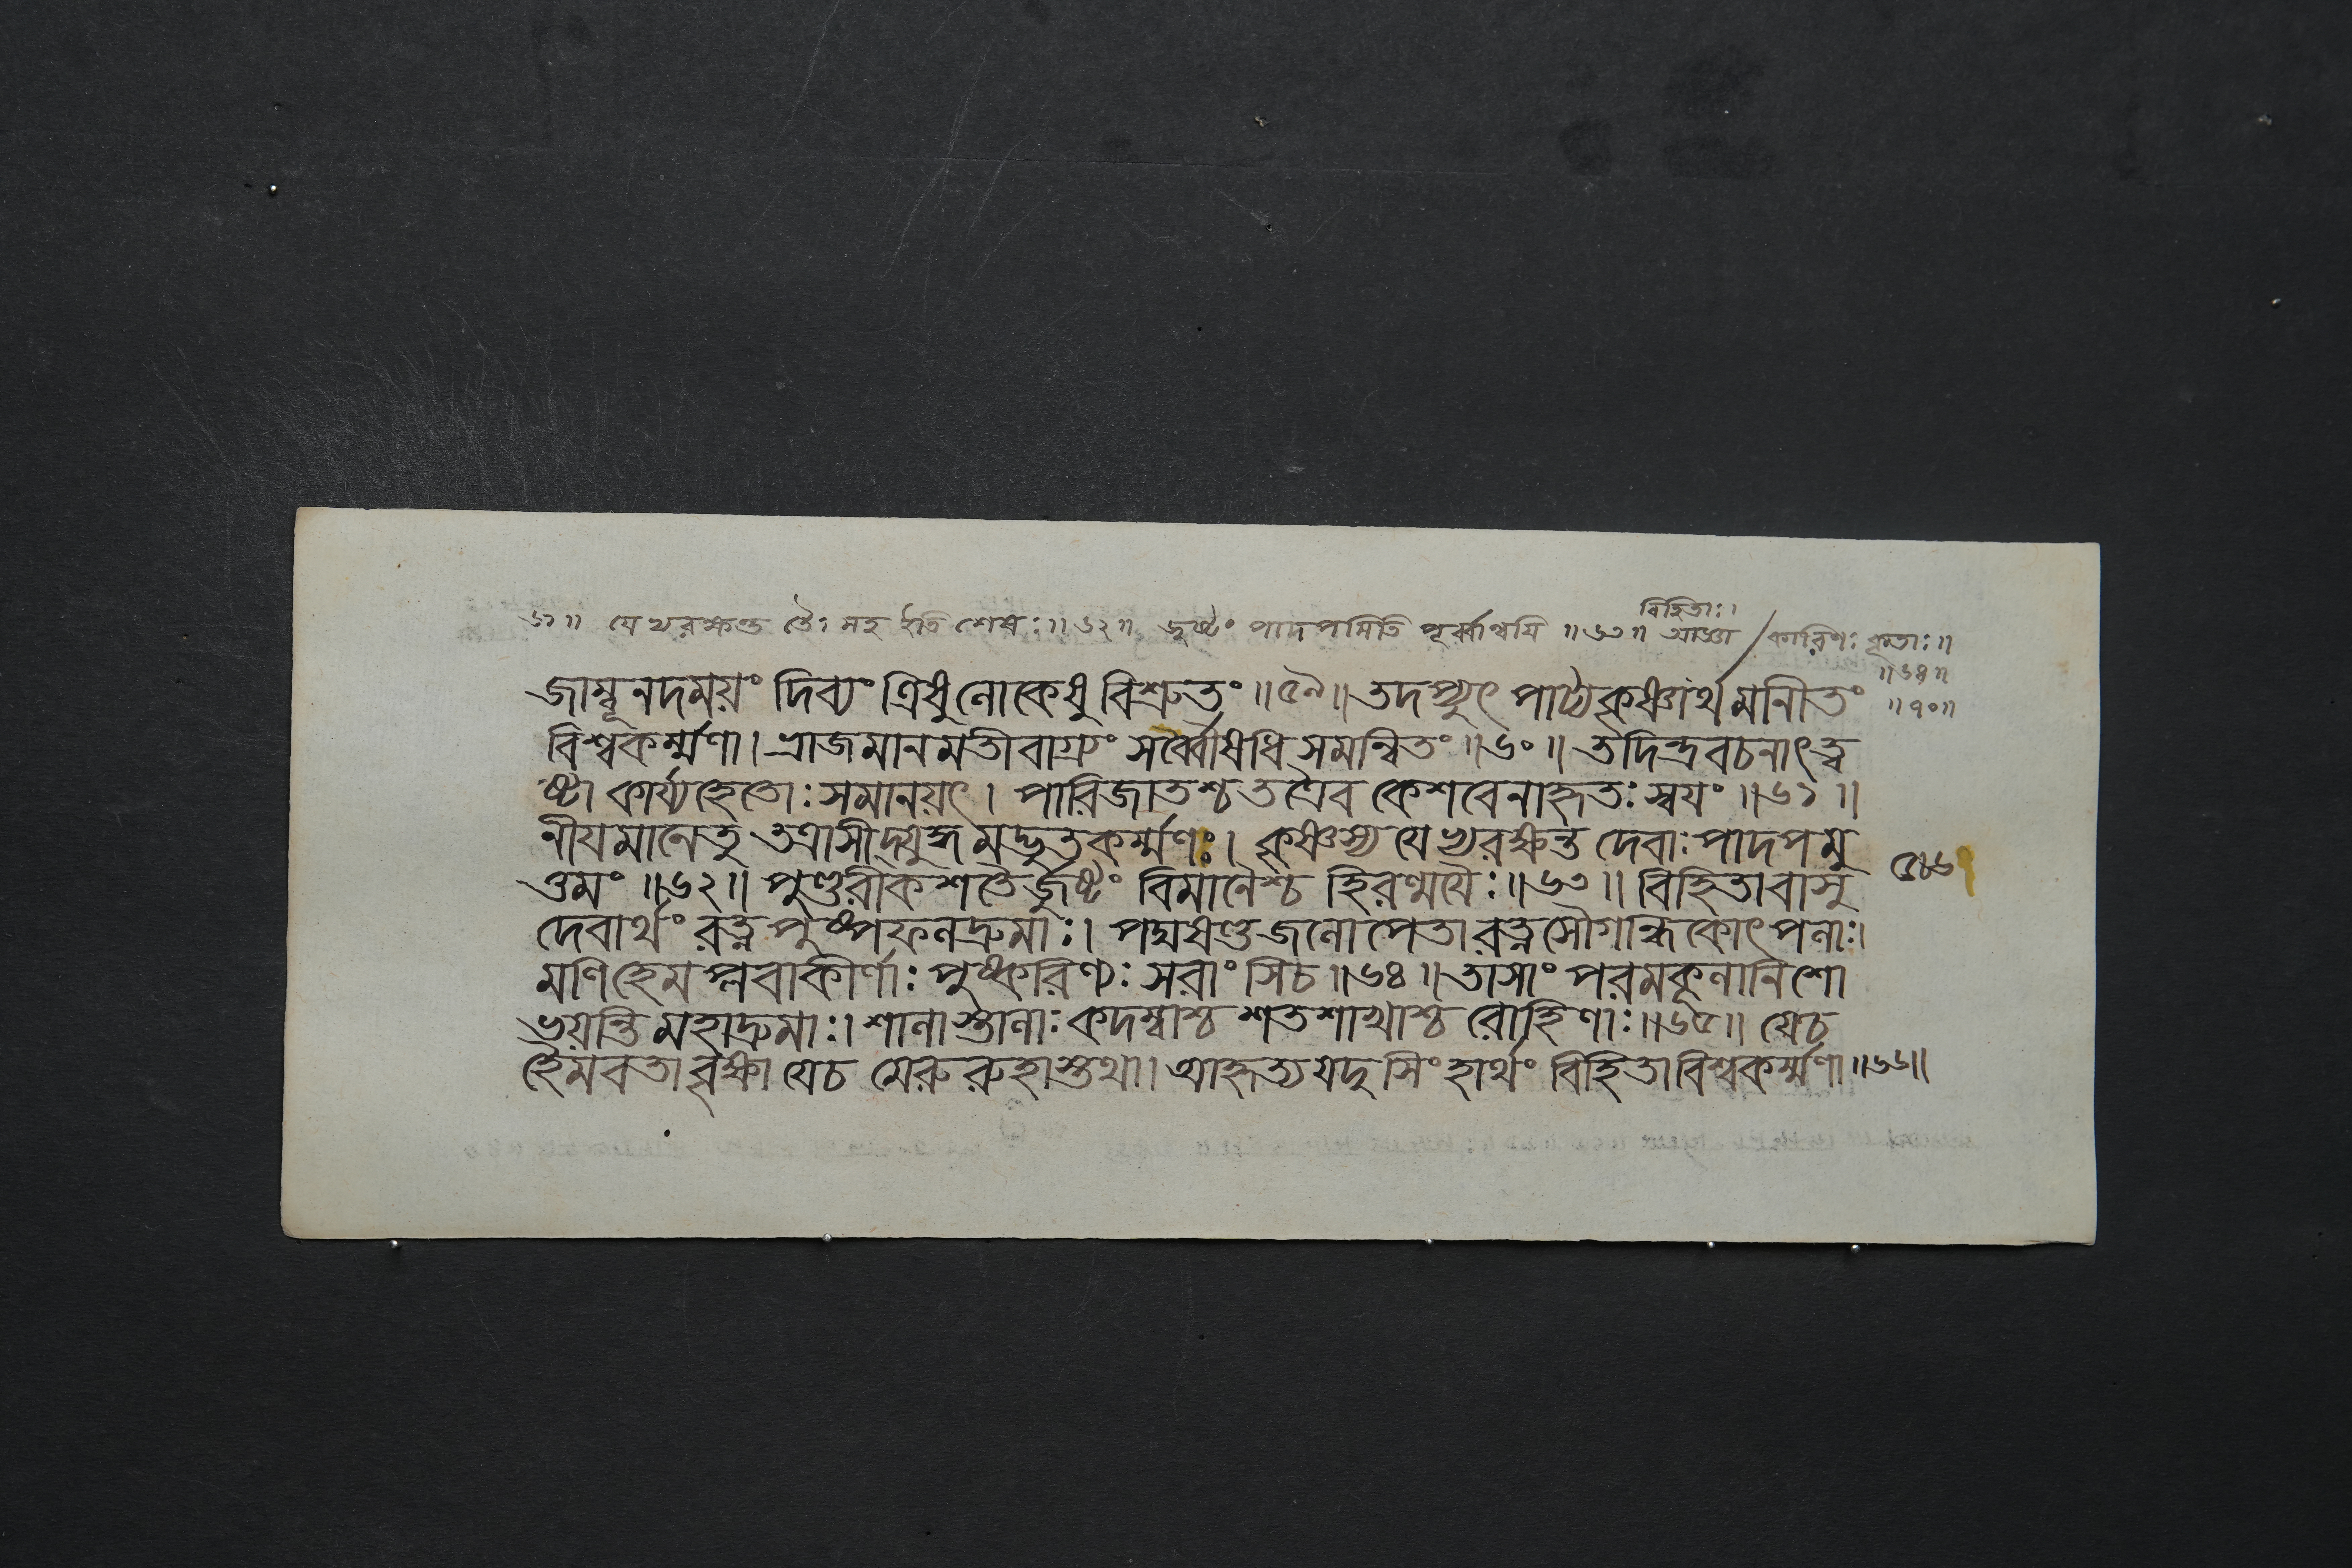 ৬১॥ যে খরক্ষন্ত তৈঃ সহ ইতি শেষঃ॥৬২॥ জুষ্টং পাদপমিতি পূর্ব্বান্বয়ি ॥৬৩॥ আজ্ঞা / কারিণঃ কৃতাঃ॥
বিহিতাঃ।
॥৬৪॥
জাম্বূনদময়ং দিব্যং ত্রিষুলোকেষু বিশ্রুতং ॥৫৯॥ তদপ্যুৎ পাট্যকৃষ্ণার্থমানীতং
॥৭০॥
বিশ্বকর্ম্মণা। ভ্রাজমানমতীবাগ্র্যং সর্ব্বৌষধি সমন্বিতং ॥৬০॥ তদিন্দ্রবচনাৎত্ব
ষ্টা কার্য্যহেতোঃ সমানয়ৎ। পারিজাতশ্চ তত্রৈব কেশবেনাহৃতঃ স্বয়ং ॥৬১॥
নীয়মানেতু তত্রাসীদ্যুদ্ধমদ্ভুতকর্ম্মণঃ। কৃষ্ণস্য যেখ্যরক্ষন্ত দেবাঃ পাদপমু
ত্তমং ॥৬২॥ পুণ্ডরীকশতৈর্জুষ্টং বিমানৈশ্চ হিরণ্ময়ৈঃ॥৬৩॥ বিহিতাবাসু
দেবার্থং রত্ন পুষ্পফলদ্রুমাঃ। পদ্মষণ্ডজলোপেতা রত্নসৌগন্ধিকোৎপলাঃ।
মণিহেমপ্লবাকীর্ণাঃ পুষ্করিণ্যঃ সরাংসিচ ॥৬৪॥ তাসাং পরমকূলানিশো
ভয়ন্তি মহাদ্রুমাঃ। শালাস্তালাঃ কদম্বাশ্চ শতশাখাশ্চ রোহিণাঃ॥৬৫॥ যেচ
হৈমবতাবৃক্ষা যেচ মেরু রুহাস্তথা। আহৃত্যযদুসিংহার্থং বিহিতাবিশ্বকর্ম্মণা ॥৬৬॥